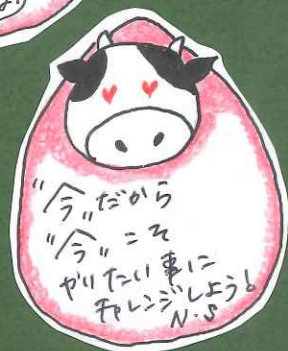 "今"だから
"今"こそ
やりたい事に
チャレンジしよう!
N・S